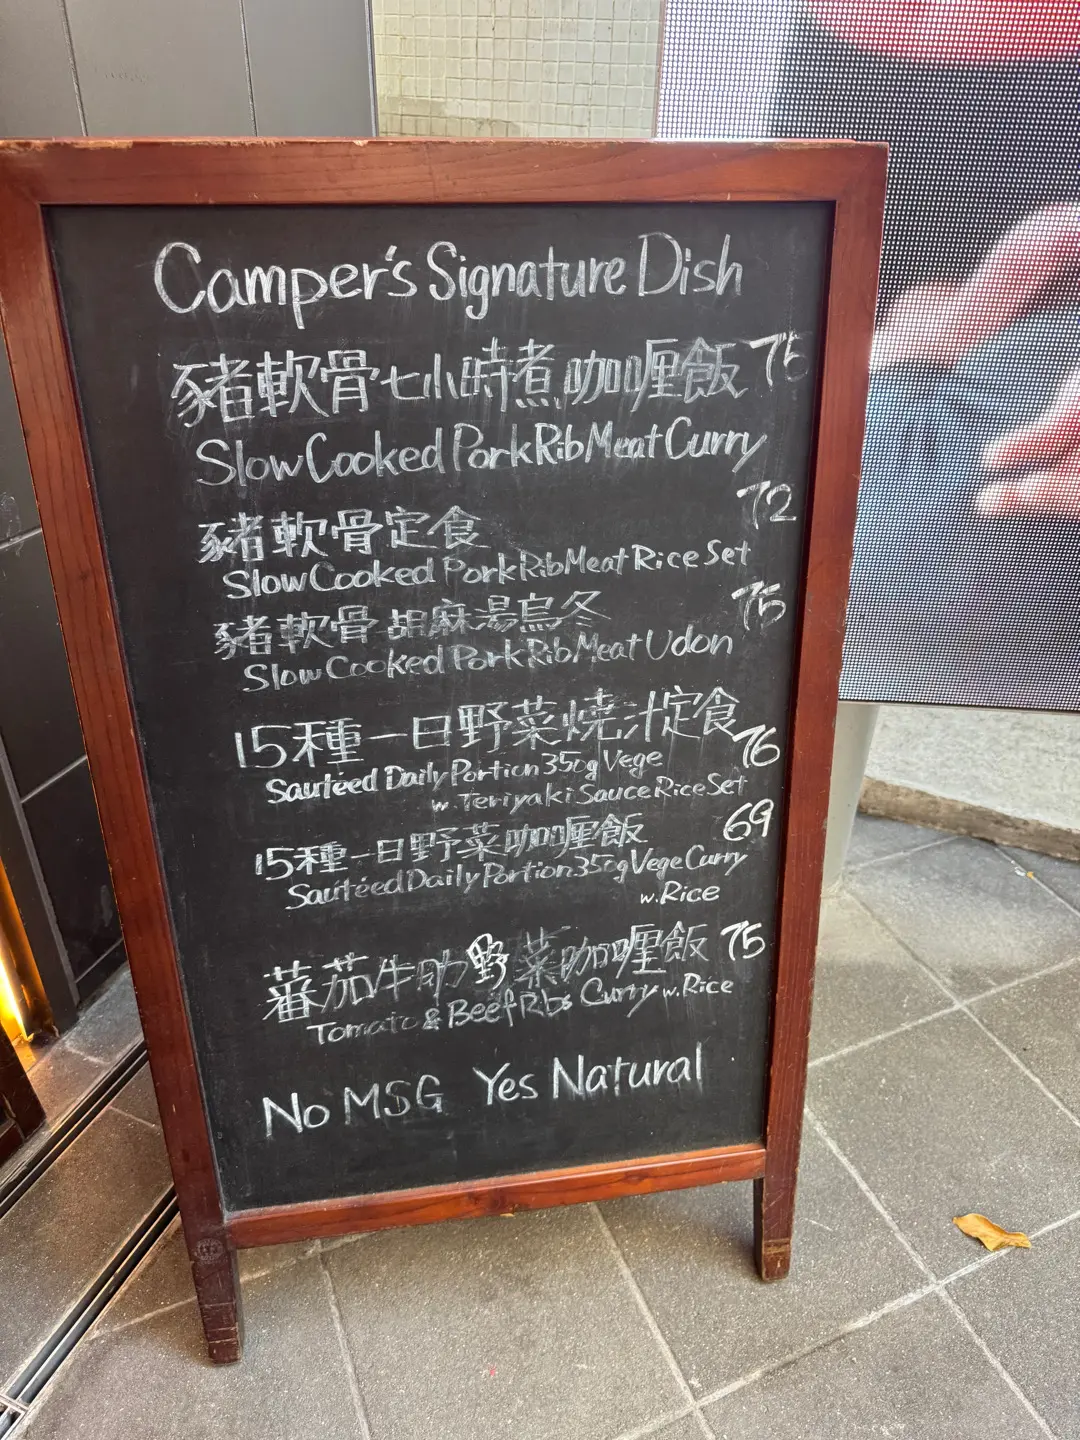 Camper's Signature Dish
豬軟骨七小時煮咖喱飯 75
Slow Cooked Pork Rib Meat Curry
72
豬軟骨定食
Slow Cooked Pork Rib Meat Rice Set
75
豬軟骨胡麻湯烏冬
Slow Cooked Pork Rib Meat Udon
15種一日野菜燒汁定食
76
Sautéed Daily Portion 350g Vege
w. Teriyaki Sauce Rice Set
69
15種一日野菜咖喱飯
Sautéed Daily Portion 350g Vege Curry
w. Rice
蕃茄牛肋野菜咖喱飯 75
Tomato & Beef Ribs Curry w. Rice
No MSG Yes Natural